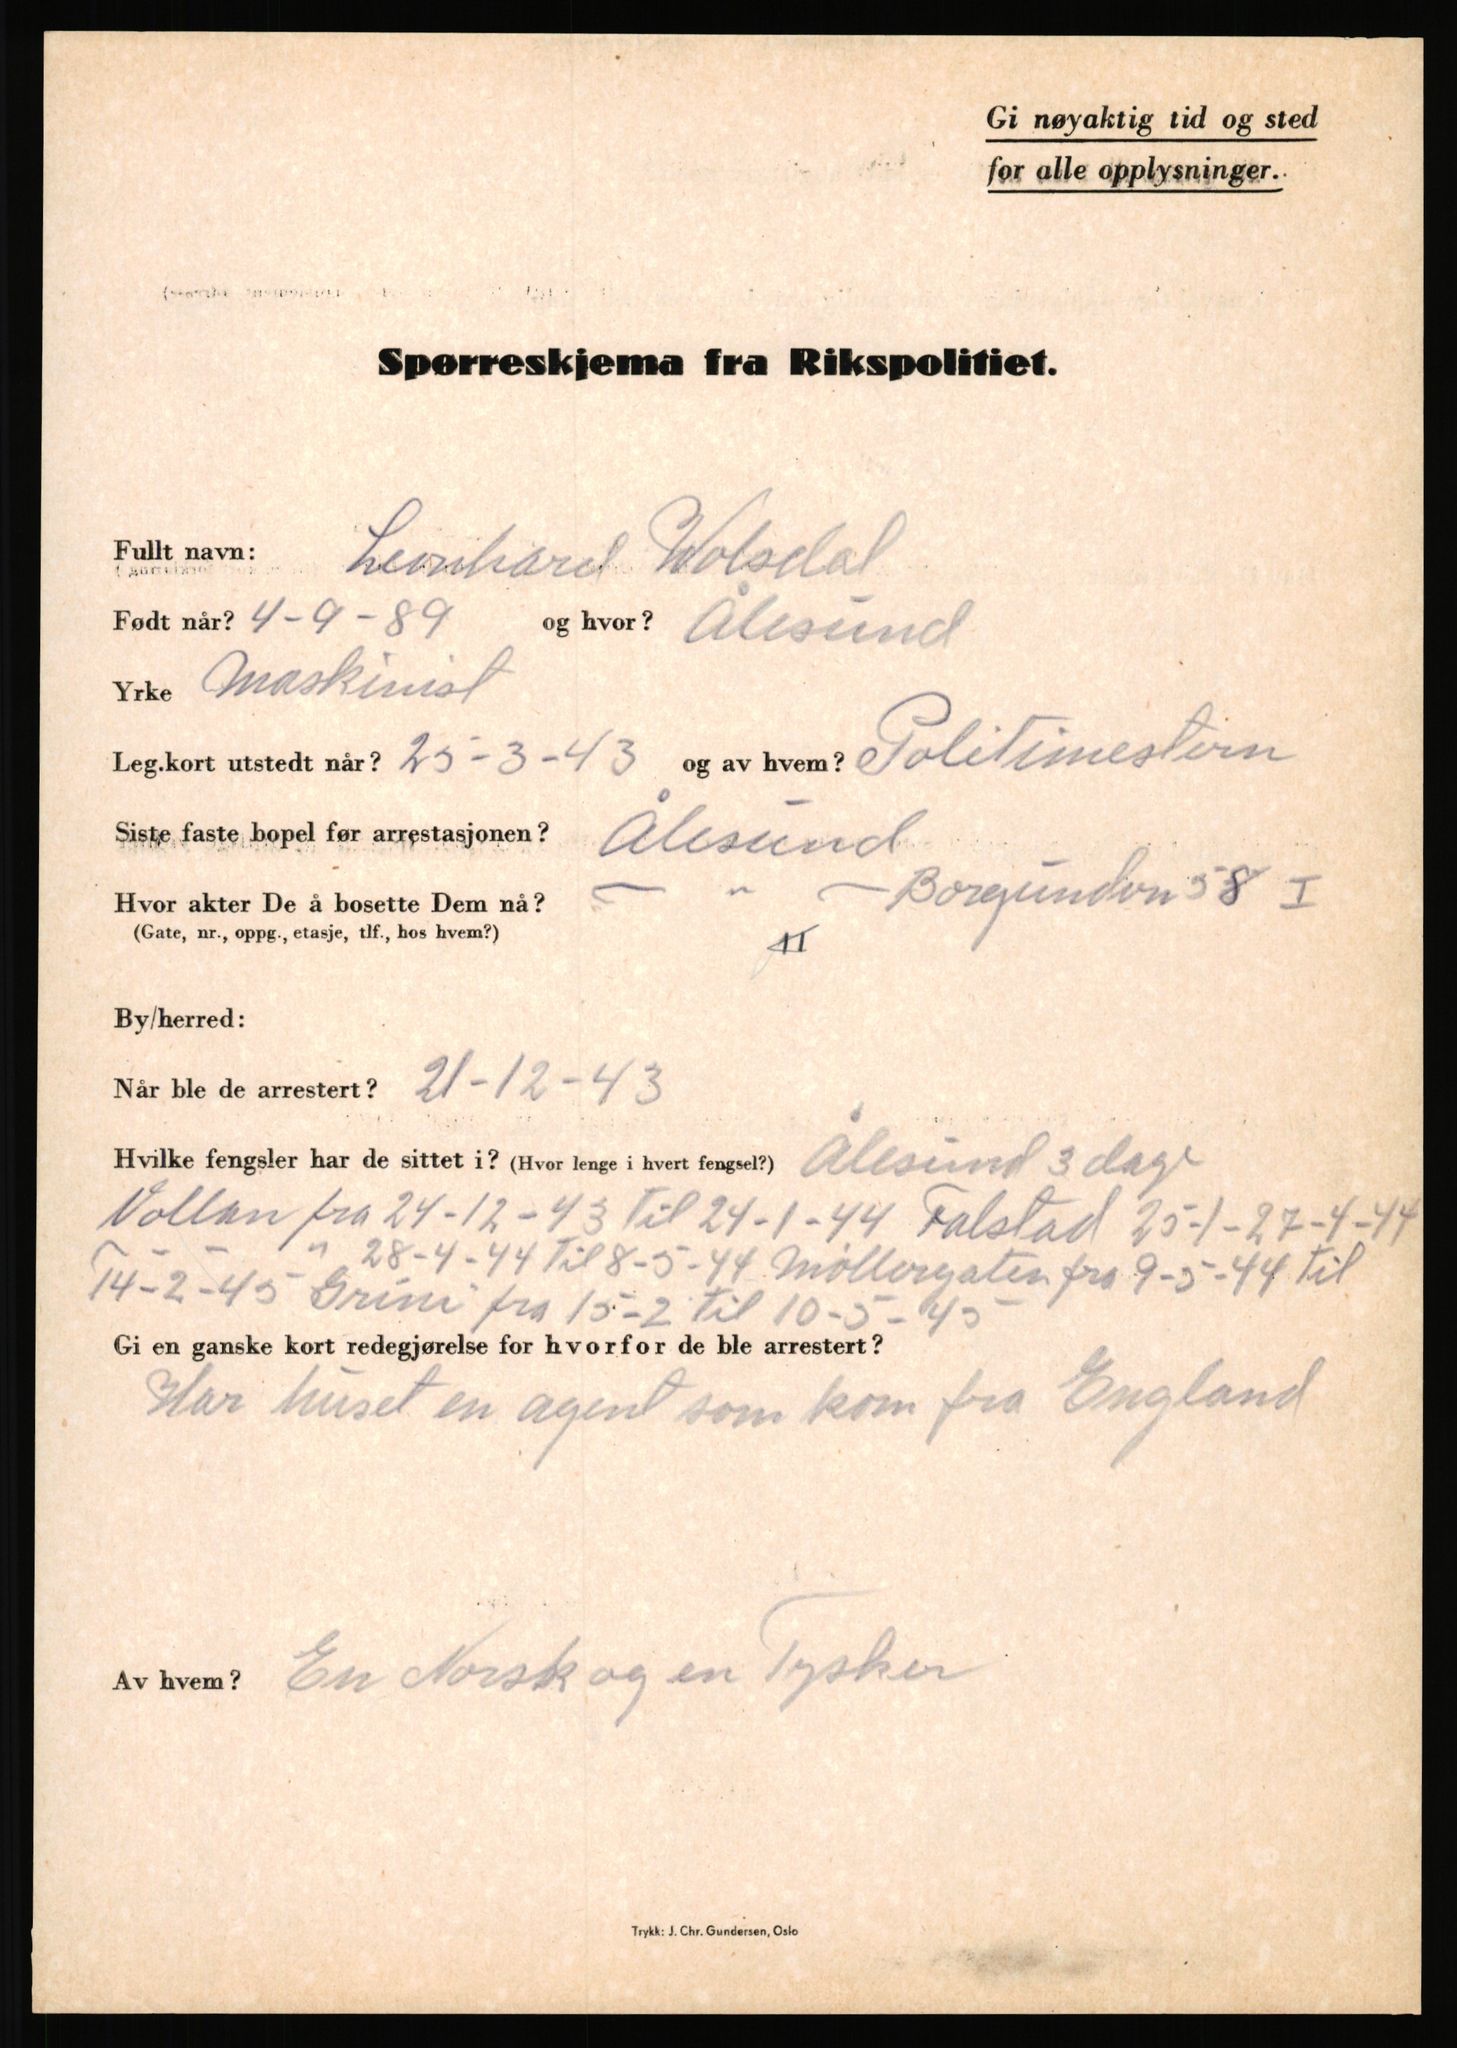 Gi nøyaktig tid og sted
for alle opplysninger.
Spørreskjema fra Rikspolitiet.
Fullt navn: Leonhard Wolsdal
Født når? 4-9-89 og hvor? Ålesund
Yrke Maskinist
Leg.kort utstedt når? 25-3-43 og av hvem? Politimestern
Siste faste bopel før arrestasjonen? Ålesund
Hvor akter De å bosette Dem nå? — " — Borgundvn 58 I
(Gate, nr., oppg., etasje, tlf., hos hvem?)
By/herred:
Når ble de arrestert? 21-12-43
Hvilke fengsler har de sittet i? (Hvor lenge i hvert fengsel?) Ålesund 3 dage
Vollan fra 24-12-43 til 24-1-44 Falstad 25-1-27-4-44
— " 28-4-44 til 8-5-44 Møllergaten fra 9-5-44 til
14-2-45 Grini fra 15-2 til 10-5-45
Gi en ganske kort redegjørelse for hvorfor de ble arrestert?
Har huset en agent som kom fra England
Av hvem? En Norsk og en Tysker
Trykk: J. Chr. Gundersen, Oslo